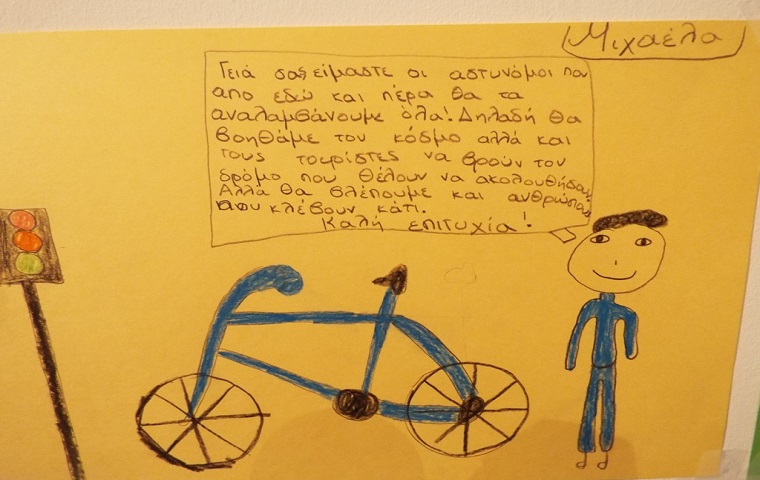 Μιχαέλα
Γειά σας είμαστε οι αστυνόμοι που
απο εδώ και πέρα θα τα
αναλαμβάνουμε όλα! Δηλαδή θα
βοηθάμε τον κόσμο αλλά και
τους τουρίστες να βρούν τον
δρόμο που θέλουν να ακολουθήσουν
Αλλά θα βλέπουμε και ανθρώπους
που κλέβουν κάτι.
Καλή επιτυχία!